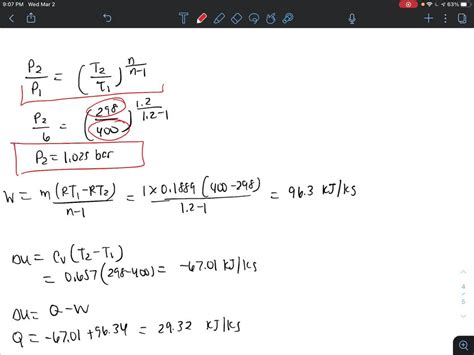 9:07 PM Wed Mar 2
63%
P2/P1 = (T2/T1)^n/n-1
P2/6 = (298/400)^1.2/1.2-1
P2 = 1.025 bar
W = m(RT1-RT2)/n-1 = 1 x 0.1889 (400-298)/1.2-1 = 96.3 KJ/Ks
DU = Cv(T2-T1)
= 0.657(298-400) = -67.01 KJ/Ks
DU = Q-W
Q = -67.01 + 96.34 = 29.32 KJ/Ks
4
5